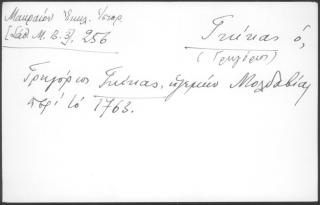 Μακραίου Ἐκκλ. Ἱστορ.
[Σάθ Μ. Β. 3], 256
Γκίκας ὁ,
(Γρηγόριος)
Γρηγόριος Γκίκας, ἡγεμὼν Μολδαβίας
περὶ τὸ 1763.